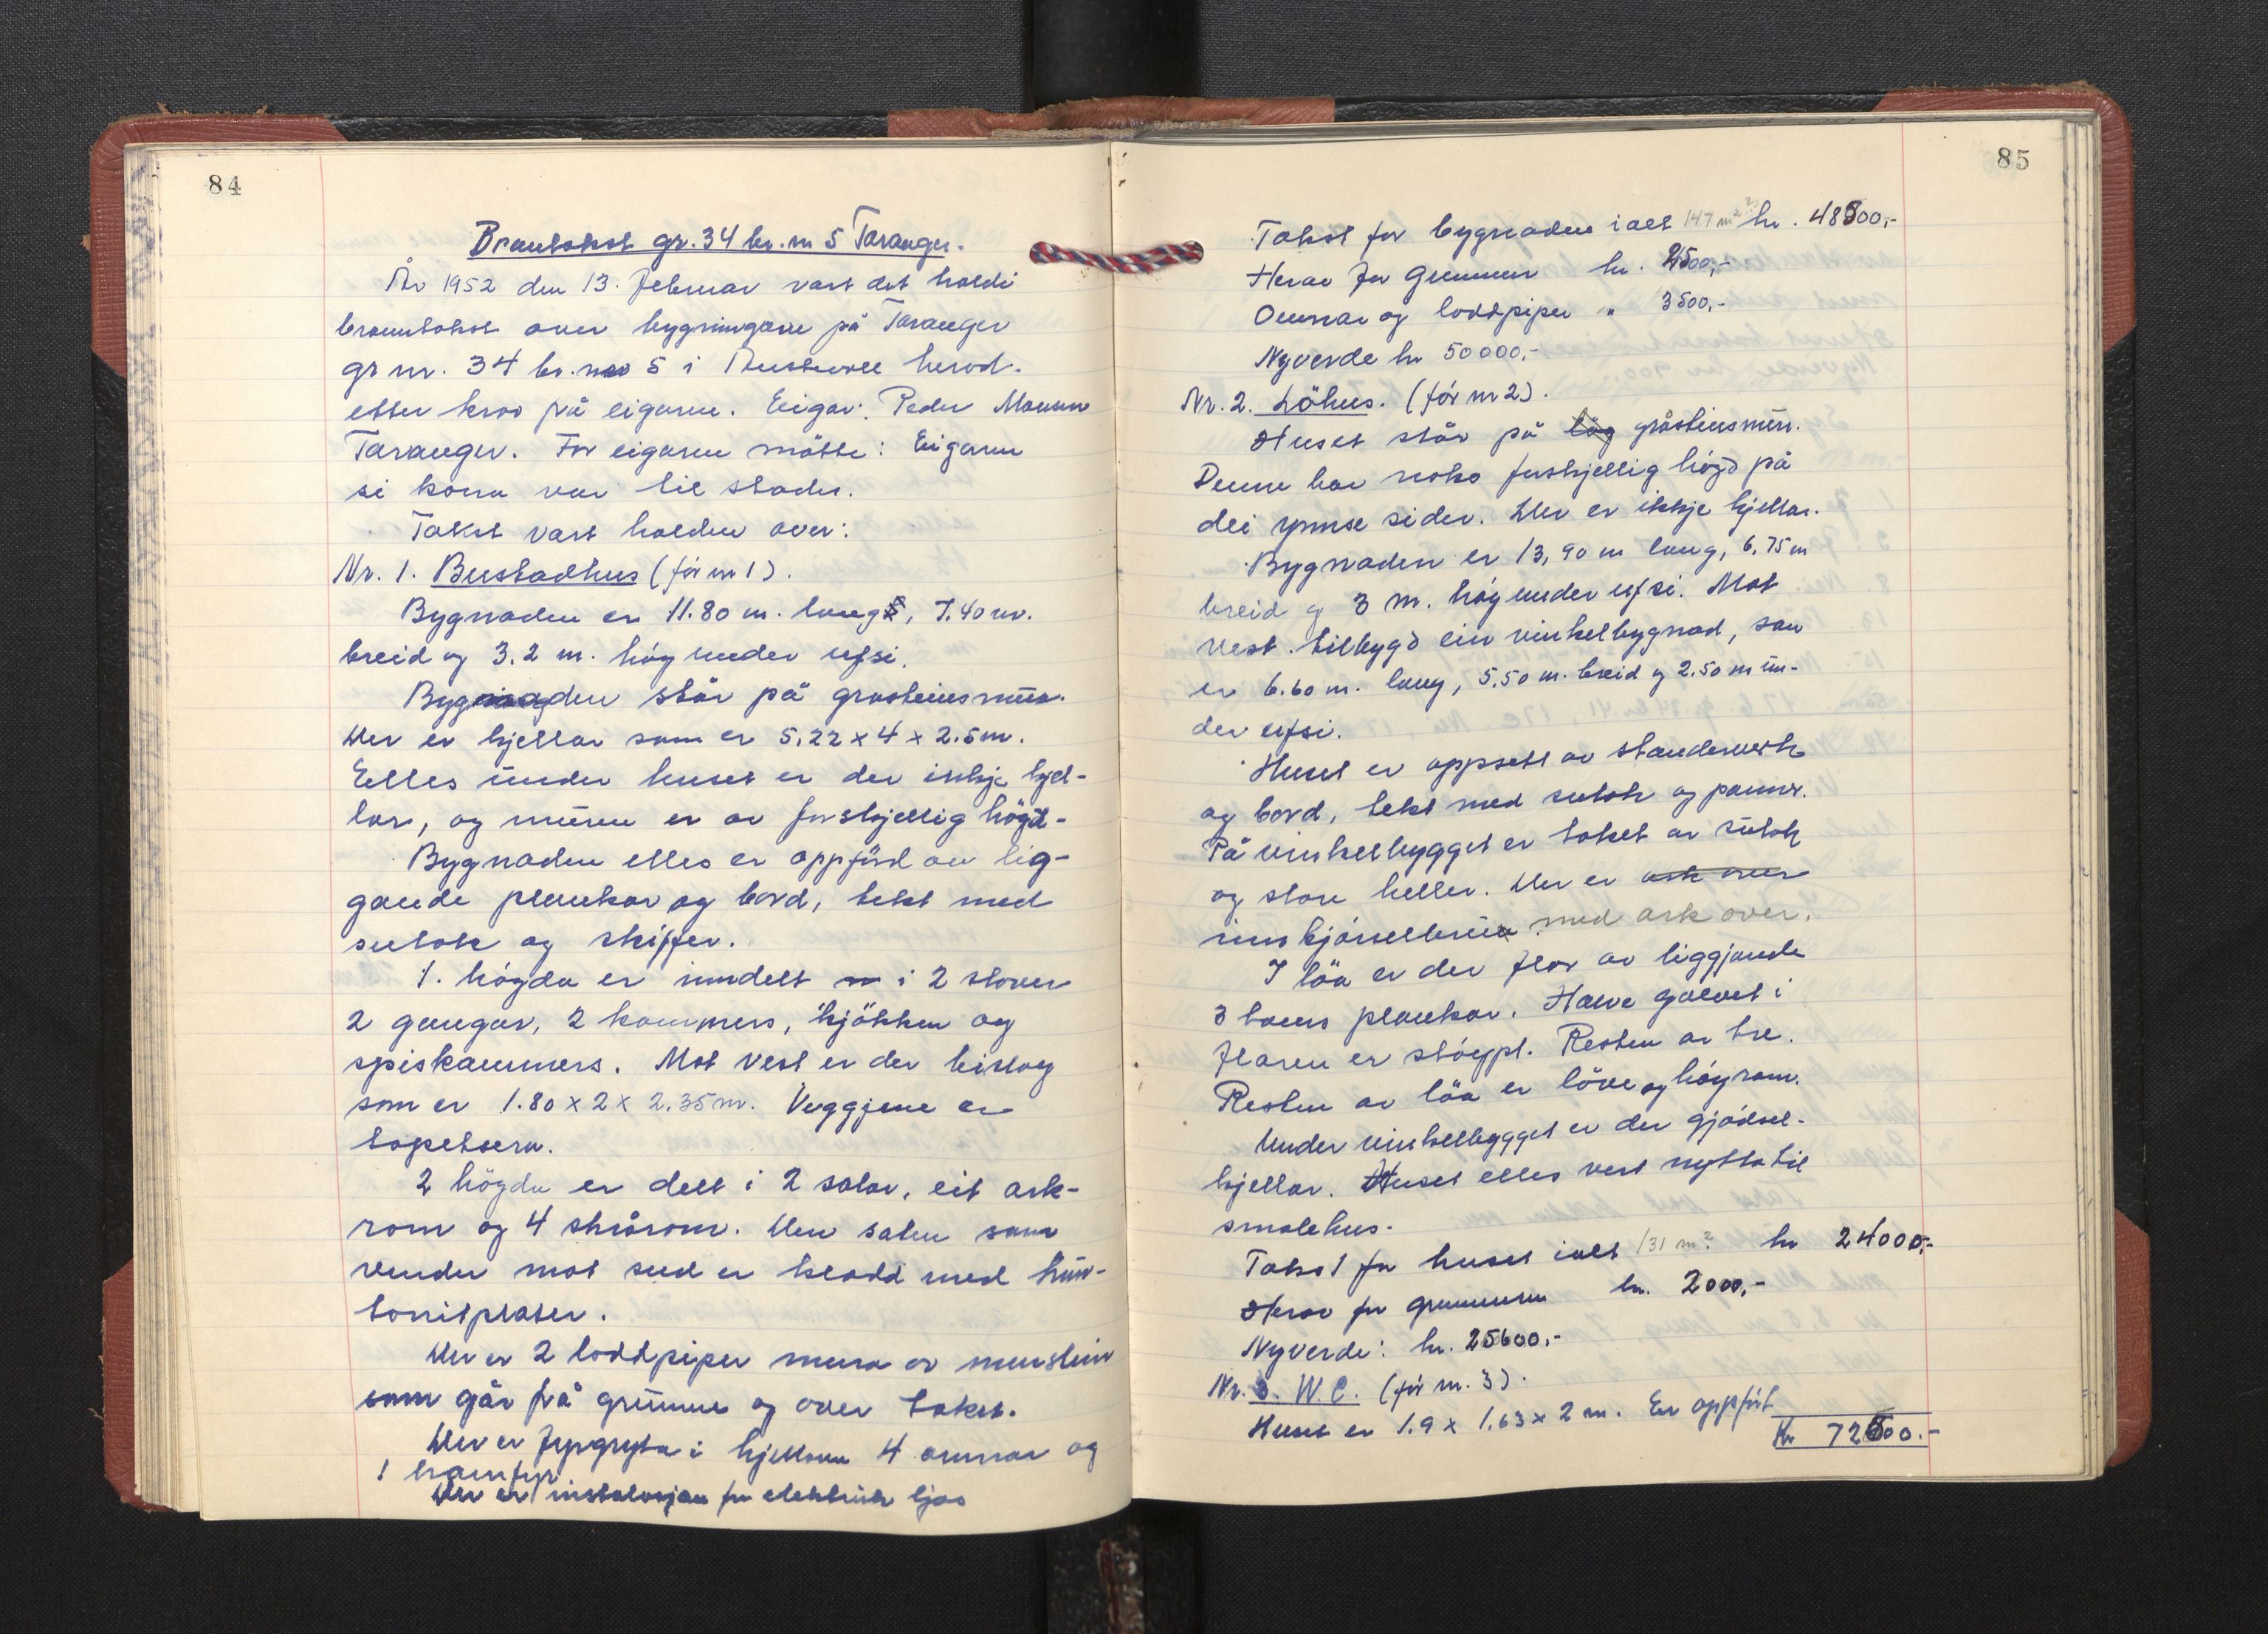 84
Branntakst gr. 34 br. nr 5 Taranger.
År 1952 den 13. februar vart det haldi
branntakst over bygningane på Taranger
gr nr. 34 br. nr 5 i Austevoll herad.
etter krav på eigaren. Eigar: Peder Monsen
Taranger. For eigaren møtte: Eigaren
si kona var til stades.
Takst vart halden over:
Nr. 1. Bustadhus (før nr 1).
Bygnaden er 11.80 m. lang, 7.40 m.
breid og 3.2 m. høg under ufsi.
Bygnaden står på gråsteinsmur.
Der er kjellar som er 5.22 x 4 x 2.5 m.
Elles under huset er der inkje kjel-
lar, og muren er av forskjellig høgd.
Bygnaden elles er oppförd av lig-
gande plankar og bord, tekt med
sutak og skiffer.
1. høgda er inndelt i 2 stover
2 gangar, 2 kammers, kjökken og
spiskammers. Mot vest er der bislag
som er 1.80 x 2 x 2.35 m. Veggjene er
tapetsera.
2 högda er delt i 2 salar, eit ark-
rom og 4 skrårom. Den salen som
vender mot sud er kledd med hun-
tonitplater.
Der er 2 loddpiper mura av murstein
som går frå grunnen og over taket.
Der er fyrgryta i kjellaren 4 omnar og
1 kamfyr
Der er instalasjon for elektrisk ljos
85
Takst for bygnaden ialt 147 m² kr. 48500,-
Herav for grunnen kr. 2500,-
Omnar og loddpiper " 3500,-
Nyverde kr 50000,-
Nr. 2. Löhus. (før nr 2).
Huset står på låg gråsteinsmur.
Denne har noko forskjellig høgd på
dei ymse sider. Der er ikkje kjellar.
Bygnaden er 13,90 m lang, 6,75 m
breid og 3 m. høg under ufsi. Mot
vest tilbygd ein vinkelbygnad, som
er 6.60 m. lang, 5.50 m. breid og 2.50 m un-
der ufsi.
Huset er oppsett av standerverk
og bord, tekt med sutak og panner.
På vinkelbygget er taket av sutak
og store heller. Der er ark over
innkjörselbrua med ark over.
I löa er der flor av liggjande
3 toms plankar. Halve golvet i
floren er støypt. Resten av tre.
Resten av löa er löve og høyrom.
Under vinkelbygget er der gjødsel-
kjellar. Huset elles vert nytta til
smalehus.
Takst for huset ialt 131 m² kr 24000,-
Herav for grunnmuren kr. 2000,-
Nyverde: kr. 25600,-
Nr. 3. W.C. (før nr. 3).
Huset er 1.9 x 1.63 x 2 m. Er oppført
Kr 72500.-